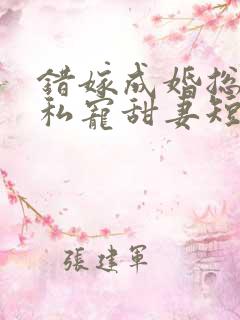 錯嫁成婚总
私寵甜妻短
張建軍